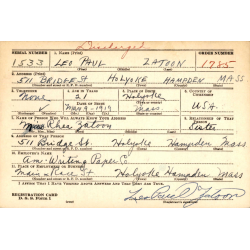 Discharged
SERIAL NUMBER 1. NAME (Print) ORDER NUMBER
1533 LEO PAUL ZATOON 1785
2. ADDRESS (Print)
511 BRIDGE St HOLYOKE HAMPDEN MASS
3. TELEPHONE 4. AGE IN YEARS 5. PLACE OF BIRTH 6. COUNTRY OF CITIZENSHIP
None 21 Holyoke
DATE OF BIRTH
Mar 9-1919 Mass U.S.A.
7. NAME OF PERSON WHO WILL ALWAYS KNOW YOUR ADDRESS 8. RELATIONSHIP OF THAT PERSON
Rhea Zatoon Sister
9. ADDRESS OF THAT PERSON
511 Bridge St Holyoke Hampden Mass
10. EMPLOYER'S NAME
Am. Writing Paper Co
11. PLACE OF EMPLOYMENT OR BUSINESS
Main Race St Holyoke Hampden Mass
I AFFIRM THAT I HAVE VERIFIED ABOVE ANSWERS AND THAT THEY ARE TRUE.
REGISTRATION CARD
D. S. S. Form 1
Leo Paul Zatoon